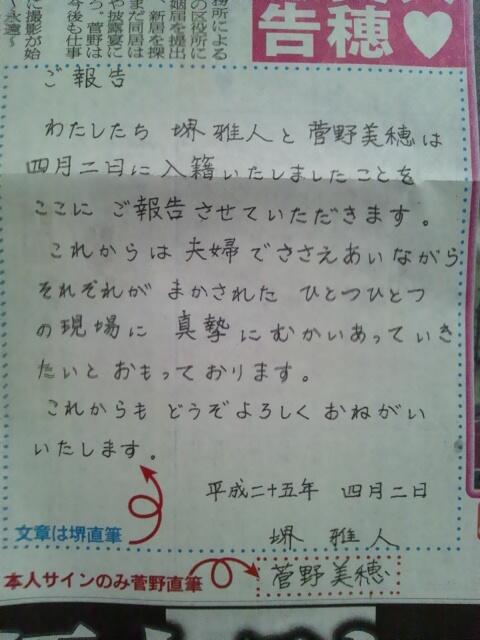 務所による
の区役所に
姻届を提出
まだ同居は
、新居を探
や披露宴に
った。菅野は
今後も仕事
に撮影が始
〜永遠〜
穂
告
ご報告
わたしたち 堺雅人と菅野美穂は
四月二日に入籍いたしましたことを
ここに ご報告させていただきます。
これからは夫婦でささえあいながら
それぞれが まかされた ひとつひとつ
の現場に 真摯にむかいあっていき
たいと おもっております。
これからも どうぞよろしく おねがい
いたします。
平成二十五年 四月二日
堺 雅人
菅野美穂
文章は堺直筆
本人サインのみ菅野直筆